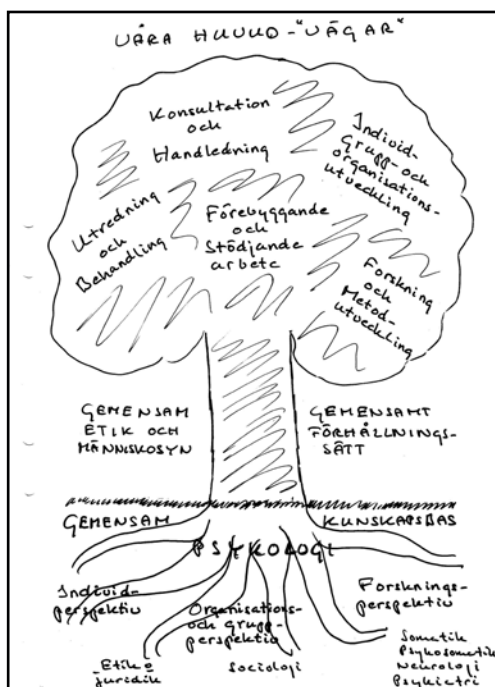 VÅRA HUVUD-"VÄGAR"
Konsultation
och
Handledning
Individ-
Grupp- och
organisations-
utveckling
Utredning
och
Behandling
Förebyggande
och
Stödjande
arbete
Forskning
och
Metod-
utveckling
GEMENSAM
ETIK OCH
MÄNNISKOSYN
GEMENSAMT
FÖRHÅLLNINGS-
SÄTT
GEMENSAM
KUNSKAPSBAS
PSYKOLOGI
Individ-
perspektiv
Organisations-
och grupp-
perspektiv
Forsknings-
perspektiv
Etik o
juridik
Sociologi
Somatik
Psykosomatik
Neurologi
Psykiatri